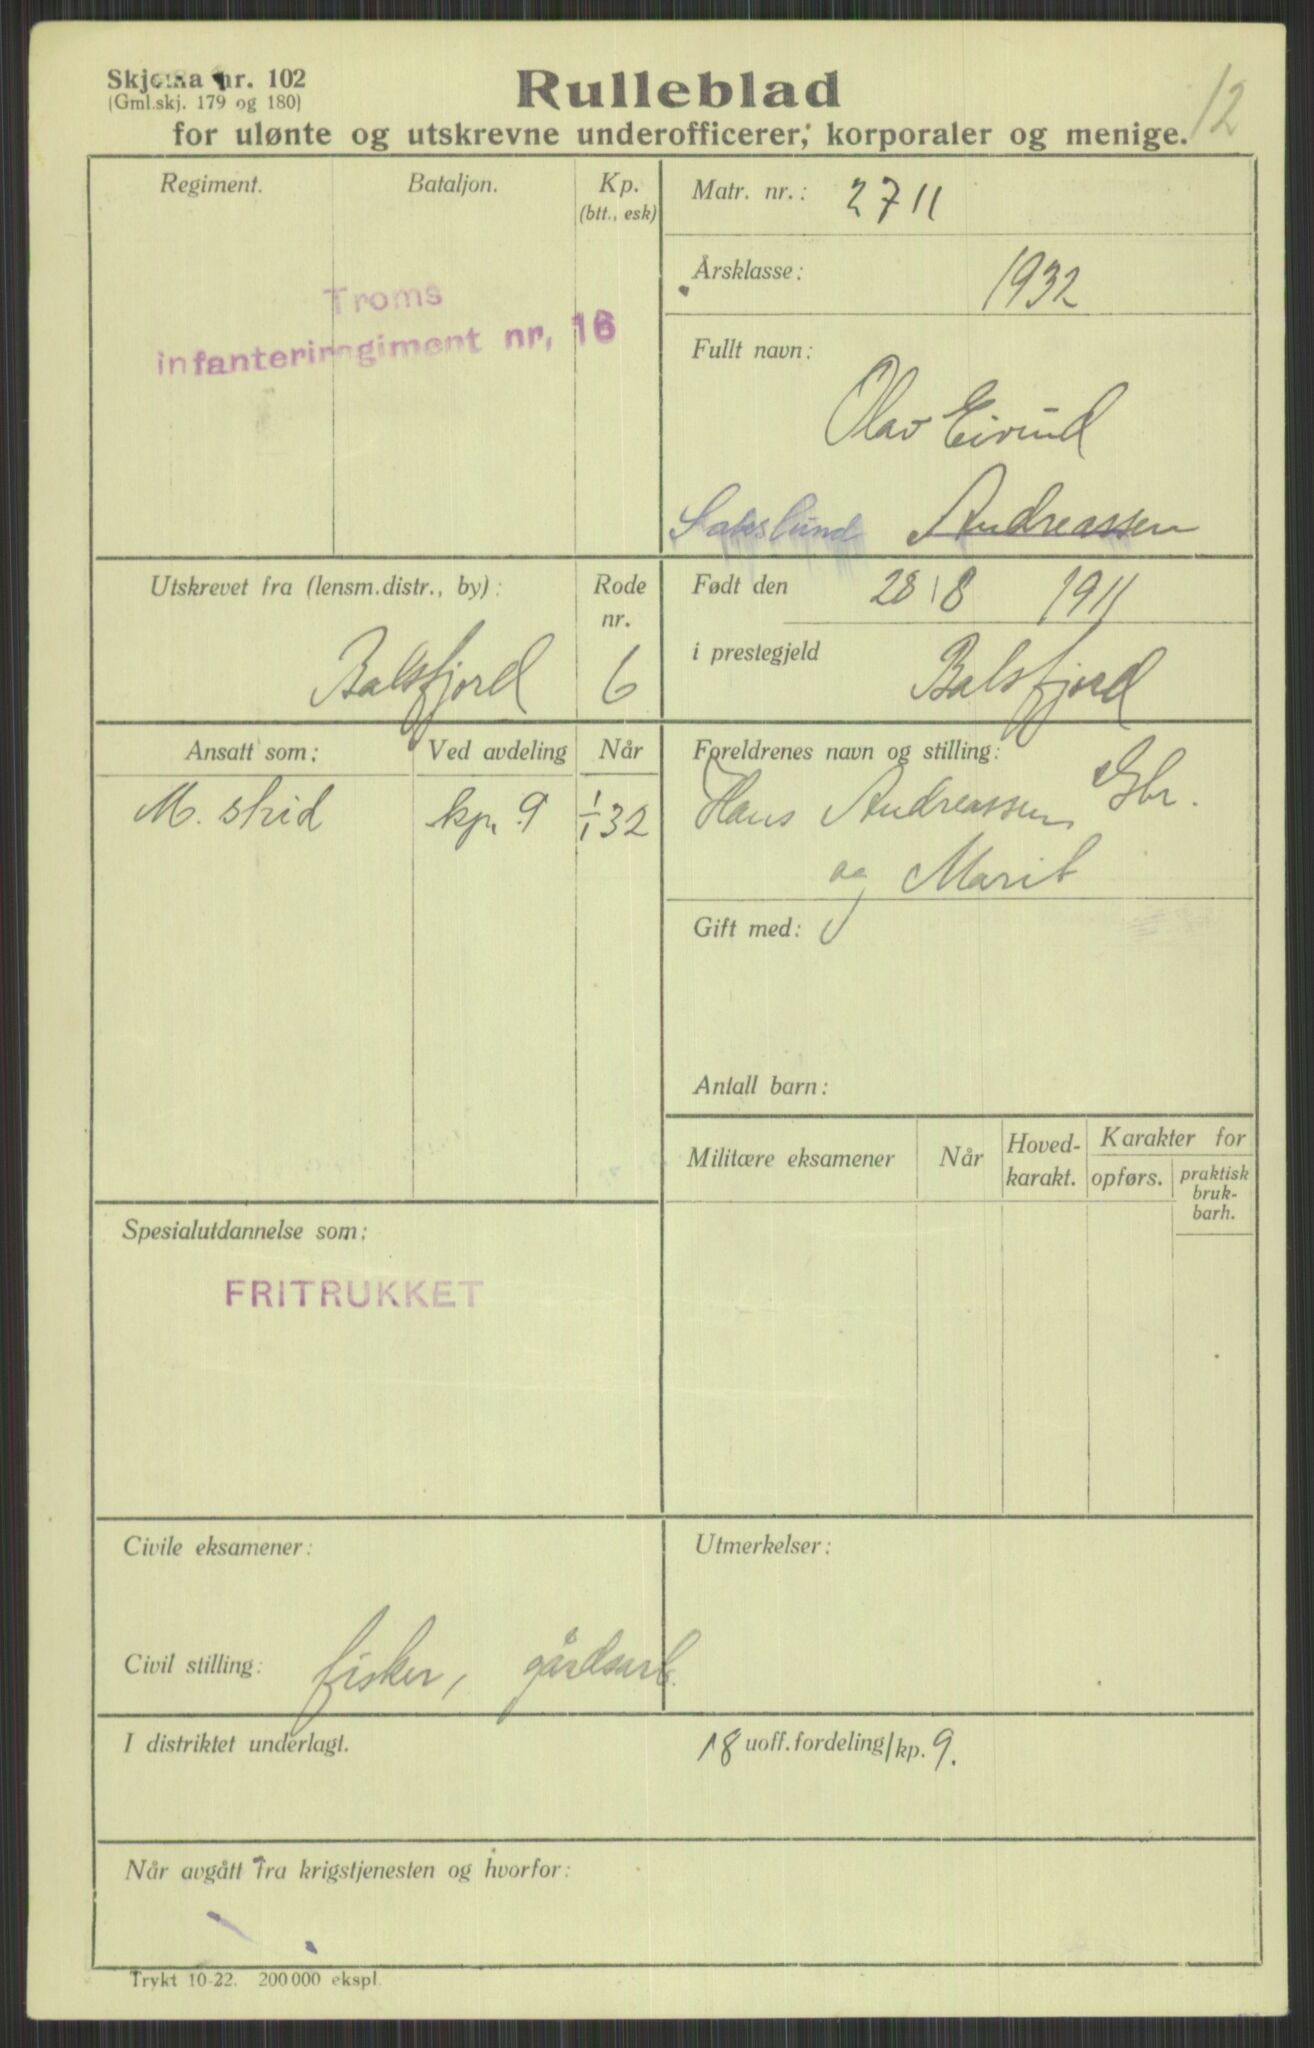 Skjema nr. 102
(Gml.skj. 179 og 180)
Rulleblad
12
for ulønte og utskrevne underofficerer, korporaler og menige.
Regiment.
Bataljon.
Kp.
(btt., esk)
Troms
infanteriregiment nr, 16
Matr. nr.: 2711
Årsklasse: 1932
Fullt navn:
Olav Eivind
Andreassen
Utskrevet fra (lensm.distr., by):
Balsfjord
Rode
nr.
6
Født den 28/8 1911
i prestegjeld Balsfjord
Ansatt som:
Ved avdeling
Når
M. skid kp. 9 1/1 32
Foreldrenes navn og stilling:
Hans Andreassen Gbr.
og Marit
Gift med:
Antall barn:
Militære eksamener
Når
Hoved-
karakt.
Karakter for
opførs.
praktisk
bruk-
barh.
Spesialutdannelse som:
FRITRUKKET
Civile eksamener:
Civil stilling: fisker, gårdsarb.
Utmerkelser:
I distriktet underlagt.
18 uoff. fordeling/kp. 9.
Når avgått fra krigstjenesten og hvorfor:
Trykt 10-22. 200 000 ekspl.